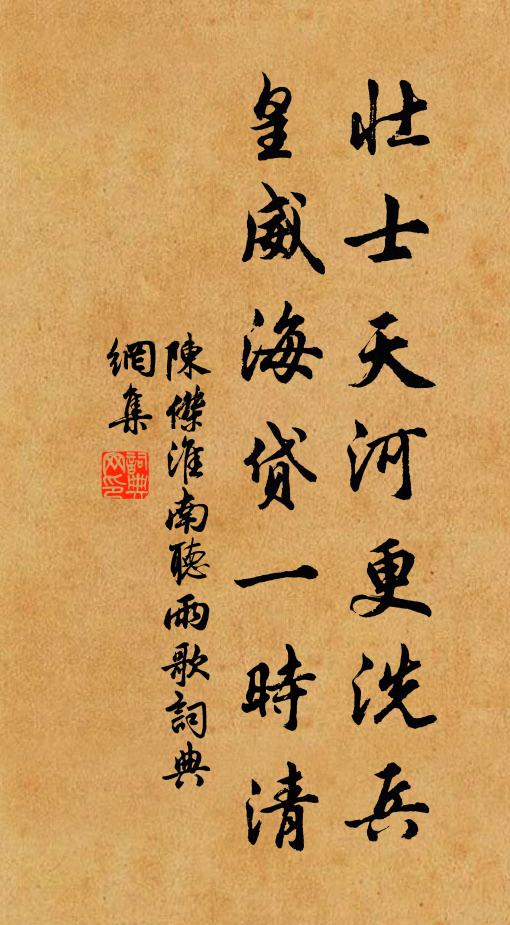 壯士天河更洗兵
皇威海貸一時清
陳傑淮南聽雨歌詞典
網集
詞典網印